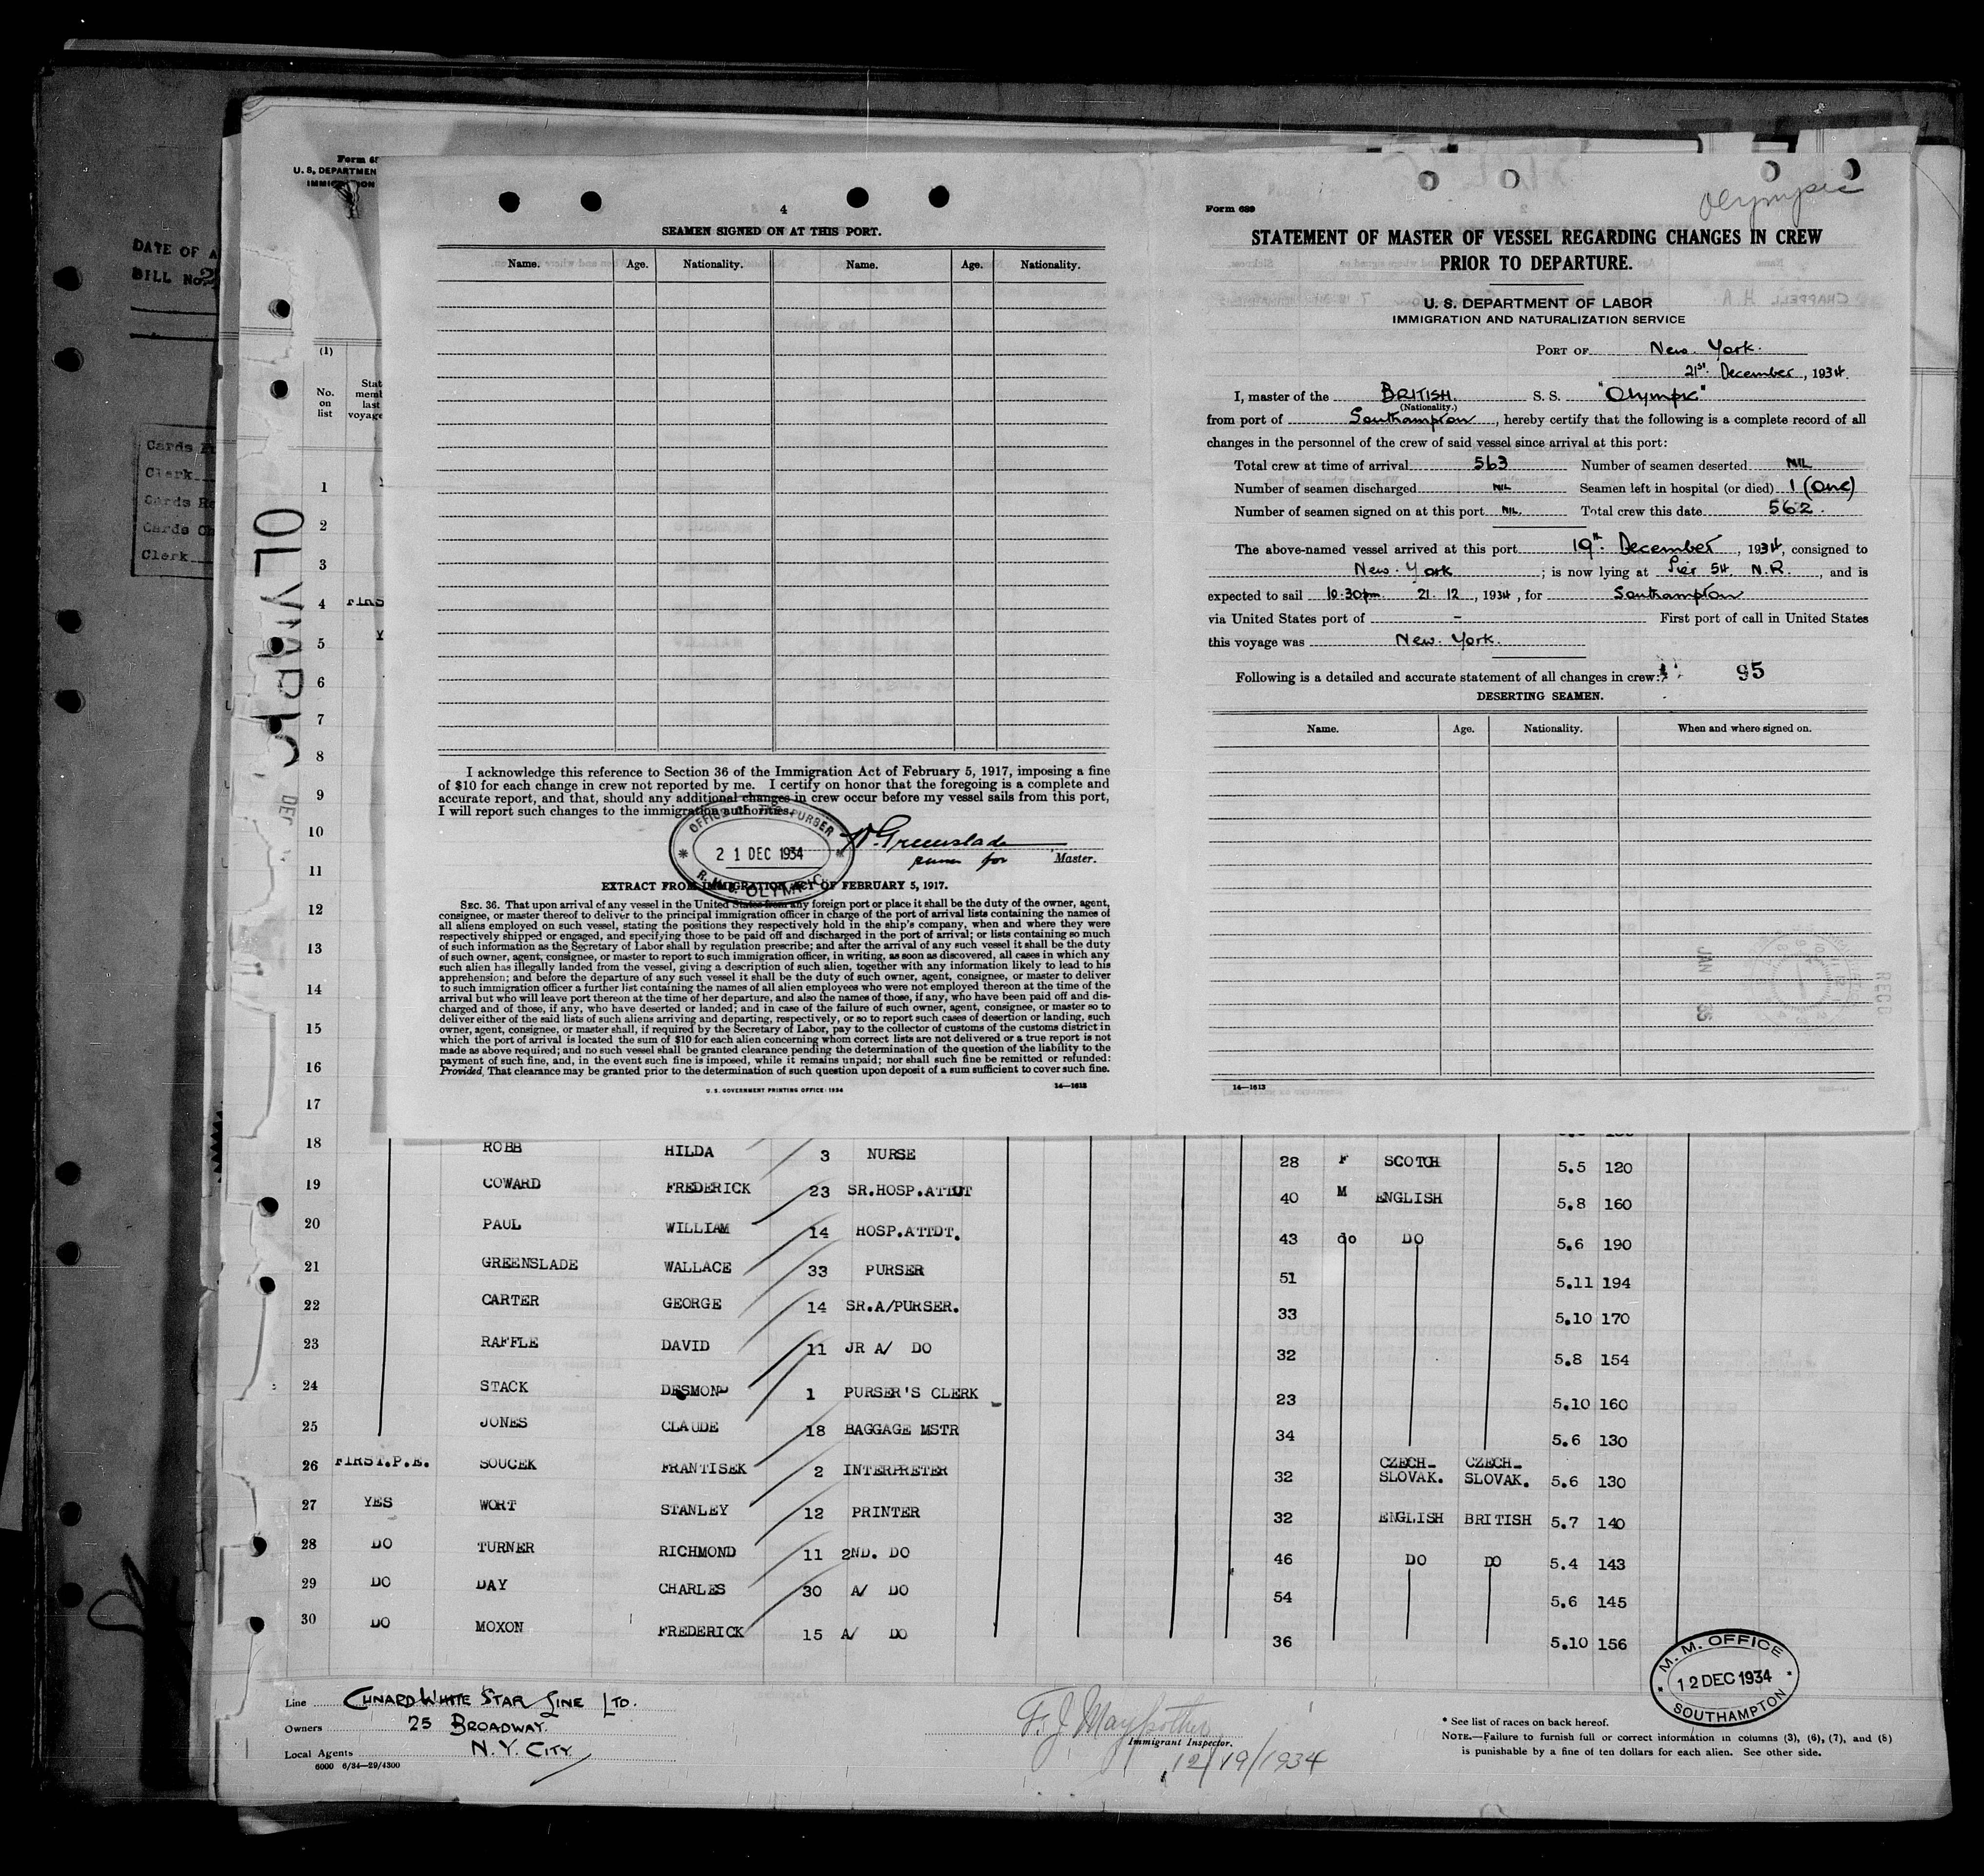 Form 68
U. S. DEPARTMEN
DATE OF A
BILL No.
Cards
Clerk
Cards
Cards
Clerk
OLYMPIC
DEC
(1)
No.
on
list
1
2
3
4
5
6
7
8
9
10
11
12
13
14
15
16
17
4
SEAMEN SIGNED ON AT THIS PORT.
Name. Age. Nationality. Name. Age. Nationality.
I acknowledge this reference to Section 36 of the Immigration Act of February 5, 1917, imposing a fine
of $10 for each change in crew not reported by me. I certify on honor that the foregoing is a complete and
accurate report, and that, should any additional changes in crew occur before my vessel sails from this port,
I will report such changes to the immigration authorities.
OFFICE OF THE PURSER
21 DEC 1934
R.M.S. OLYMPIC
W. Greenslade
purser for Master.
EXTRACT FROM IMMIGRATION ACT OF FEBRUARY 5, 1917.
SEC. 36. That upon arrival of any vessel in the United States from any foreign port or place it shall be the duty of the owner, agent,
consignee, or master thereof to deliver to the principal immigration officer in charge of the port of arrival lists containing the names of
all aliens employed on such vessel, stating the positions they respectively hold in the ship's company, when and where they were
respectively shipped or engaged, and specifying those to be paid off and discharged in the port of arrival; or lists containing so much
of such information as the Secretary of Labor shall by regulation prescribe; and after the arrival of any such vessel it shall be the duty
of such owner, agent, consignee, or master to report to such immigration officer, in writing, as soon as discovered, all cases in which any
such alien has illegally landed from the vessel, giving a description of such alien, together with any information likely to lead to his
apprehension; and before the departure of any such vessel it shall be the duty of such owner, agent, consignee, or master to deliver
to such immigration officer a further list containing the names of all alien employees who were not employed thereon at the time of the
arrival but who will leave port thereon at the time of her departure, and also the names of those, if any, who have been paid off and dis-
charged and of those, if any, who have deserted or landed; and in case of the failure of such owner, agent, consignee, or master so to
deliver either of the said lists of such aliens arriving and departing, respectively, or so to report such cases of desertion or landing, such
owner, agent, consignee, or master shall, if required by the Secretary of Labor, pay to the collector of customs of the customs district in
which the port of arrival is located the sum of $10 for each alien concerning whom correct lists are not delivered or a true report is not
made as above required; and no such vessel shall be granted clearance pending the determination of the question of the liability to the
payment of such fine, and, in the event such fine is imposed, while it remains unpaid; nor shall such fine be remitted or refunded:
Provided, That clearance may be granted prior to the determination of such question upon deposit of a sum sufficient to cover such fine.
U. S. GOVERNMENT PRINTING OFFICE: 1934 14—1613
Olympic
Form 689
STATEMENT OF MASTER OF VESSEL REGARDING CHANGES IN CREW
PRIOR TO DEPARTURE.
U. S. DEPARTMENT OF LABOR
IMMIGRATION AND NATURALIZATION SERVICE
PORT OF New York.
21st. December, 1934.
I, master of the BRITISH S. S. "Olympic"
(Nationality.)
from port of Southampton, hereby certify that the following is a complete record of all
changes in the personnel of the crew of said vessel since arrival at this port:
Total crew at time of arrival 563 Number of seamen deserted NIL
Number of seamen discharged NIL Seamen left in hospital (or died) 1 (One)
Number of seamen signed on at this port NIL. Total crew this date 562.
The above-named vessel arrived at this port 19th. December, 1934, consigned to
New York; is now lying at Pier 54. N.R., and is
expected to sail 10.30pm. 21. 12, 1934, for Southampton
via United States port of - First port of call in United States
this voyage was New York.
Following is a detailed and accurate statement of all changes in crew: 95
DESERTING SEAMEN.
Name. Age. Nationality. When and where signed on.
JAN
RECD
14—1613
18 ROBB HILDA 3 NURSE 28 F SCOTCH 5.5 120
19 COWARD FREDERICK 23 SR.HOSP.ATTDT 40 M ENGLISH 5.8 160
20 PAUL WILLIAM 14 HOSP.ATTDT. 43 do DO 5.6 190
21 GREENSLADE WALLACE 33 PURSER 51 5.11 194
22 CARTER GEORGE 14 SR.A/PURSER. 33 5.10 170
23 RAFFLE DAVID 11 JR A/ DO 32 5.8 154
24 STACK DESMOND 1 PURSER'S CLERK 23 5.10 160
25 JONES CLAUDE 18 BAGGAGE MSTR 34 5.6 130
26 FIRST.P.E. SOUCEK FRANTISEK 2 INTERPRETER 32 CZECH-SLOVAK. CZECH-SLOVAK. 5.6 130
27 YES WORT STANLEY 12 PRINTER 32 ENGLISH BRITISH 5.7 140
28 DO TURNER RICHMOND 11 2ND. DO 46 DO DO 5.4 143
29 DO DAY CHARLES 30 A/ DO 54 5.6 145
30 DO MOXON FREDERICK 15 A/ DO 36 5.10 156
M. M. OFFICE
12 DEC 1934
SOUTHAMPTON
Line CUNARD WHITE STAR LINE LTD.
Owners 25 BROADWAY.
Local Agents N.Y. CITY
6000 6/34—29/4300
F. J. Maypother
Immigrant Inspector.
12/19/1934
* See list of races on back hereof.
NOTE.—Failure to furnish full or correct information in columns (3), (6), (7), and (8)
is punishable by a fine of ten dollars for each alien. See other side.